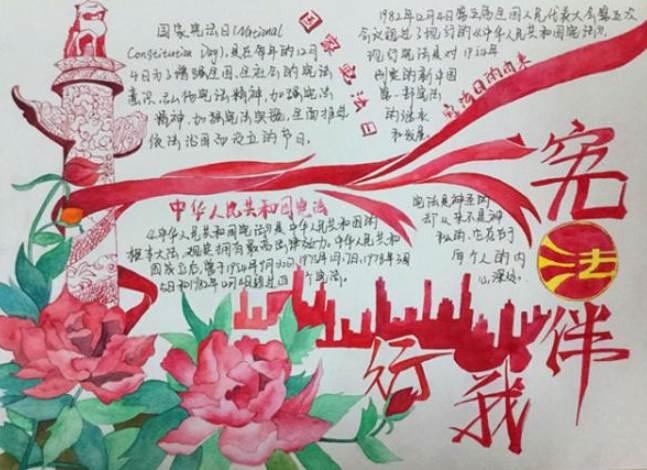 国家宪法日(National
Constitution Day),是在每年的12月
4日为了增强全国、全社会的宪法
意识、弘扬宪法精神,加强宪法
实施、全面推进
依法治国而设立的节日。
国家宪法日
1982年12月4日第五届全国人民代表大会第五次
会议通过了现行的《中华人民共和国宪法》。
现行宪法是对1954年
制定的新中国
第一部宪法
的继承
和发展。
宪法日的由来
中华人民共和国宪法
《中华人民共和国宪法》是中华人民共和国的
根本大法,规定拥有最高法律效力。中华人民共和
国成立后,曾于1954年9月20日、1975年1月17日、1978年3月
5日和1982年12月4日通过四个宪法,
宪法是神圣的
却从来不是神
秘的,它存在于
每个人的内
心深处。
宪法伴我行